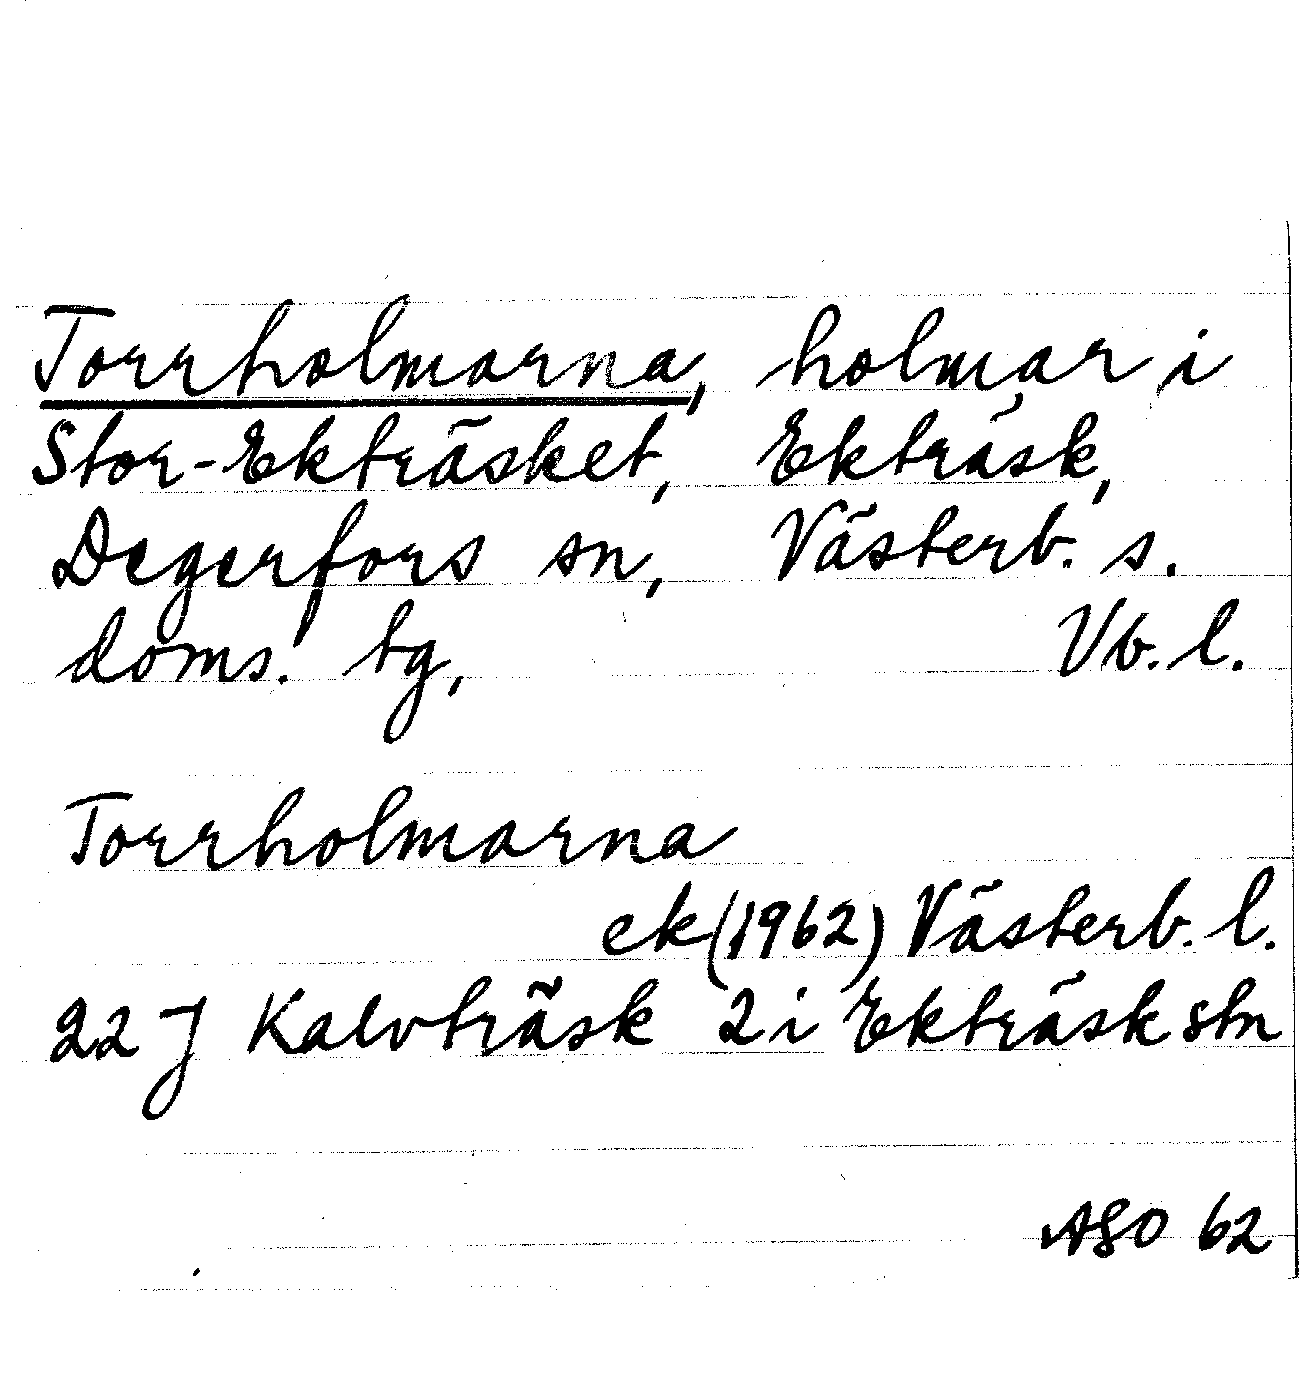 Torrholmarna, holmar i
Stor-Ekträsket, Ekträsk,
Degerfors sn, Västerb. s.
doms. tg, Vb. l.
Torrholmarna
ek (1962) Västerb. l.
22 J Kalvträsk 2 i Ekträsk stn
ASO 62